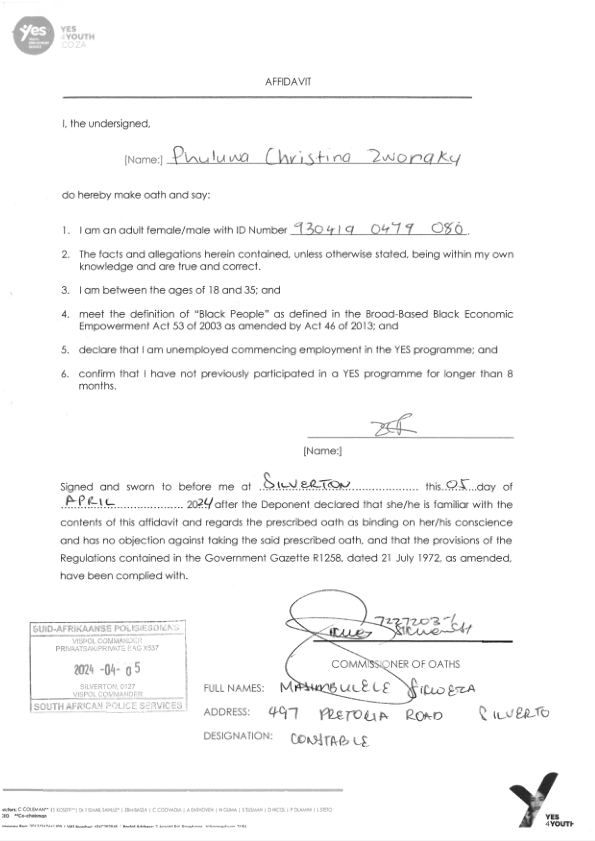 yes
YES
4YOUTH
CO.ZA
AFFIDAVIT
I, the undersigned,
[Name:] Phuluwa Christina Zwonaky
do hereby make oath and say:
1. I am an adult female/male with ID Number 930419 0479 086.
2. The facts and allegations herein contained, unless otherwise stated, being within my own
knowledge and are true and correct.
3. I am between the ages of 18 and 35; and
4. meet the definition of “Black People” as defined in the Broad-Based Black Economic
Empowerment Act 53 of 2003 as amended by Act 46 of 2013; and
5. declare that I am unemployed commencing employment in the YES programme; and
6. confirm that I have not previously participated in a YES programme for longer than 8
months.
[Name:]
Signed and sworn to before me at SILVERTON this 05 day of
APRIL 2024 after the Deponent declared that she/he is familiar with the
contents of this affidavit and regards the prescribed oath as binding on her/his conscience
and has no objection against taking the said prescribed oath, and that the provisions of the
Regulations contained in the Government Gazette R1258, dated 21 July 1972, as amended,
have been complied with.
7227203-1
COMMISSIONER OF OATHS
SUID-AFRIKAANSE POLISIEDIENS
VISPOL COMMANDER
PRIVAATSAK/PRIVATE BAG X537
2024 -04- 05
SILVERTON, 0127
VISPOL COMMANDER
SOUTH AFRICAN POLICE SERVICES
FULL NAMES: MASIMBULELE
ADDRESS: 497 PRETORIA ROAD SILVERTO
DESIGNATION: CONSTABLE
**Co-chairman
YES
4YOUTH